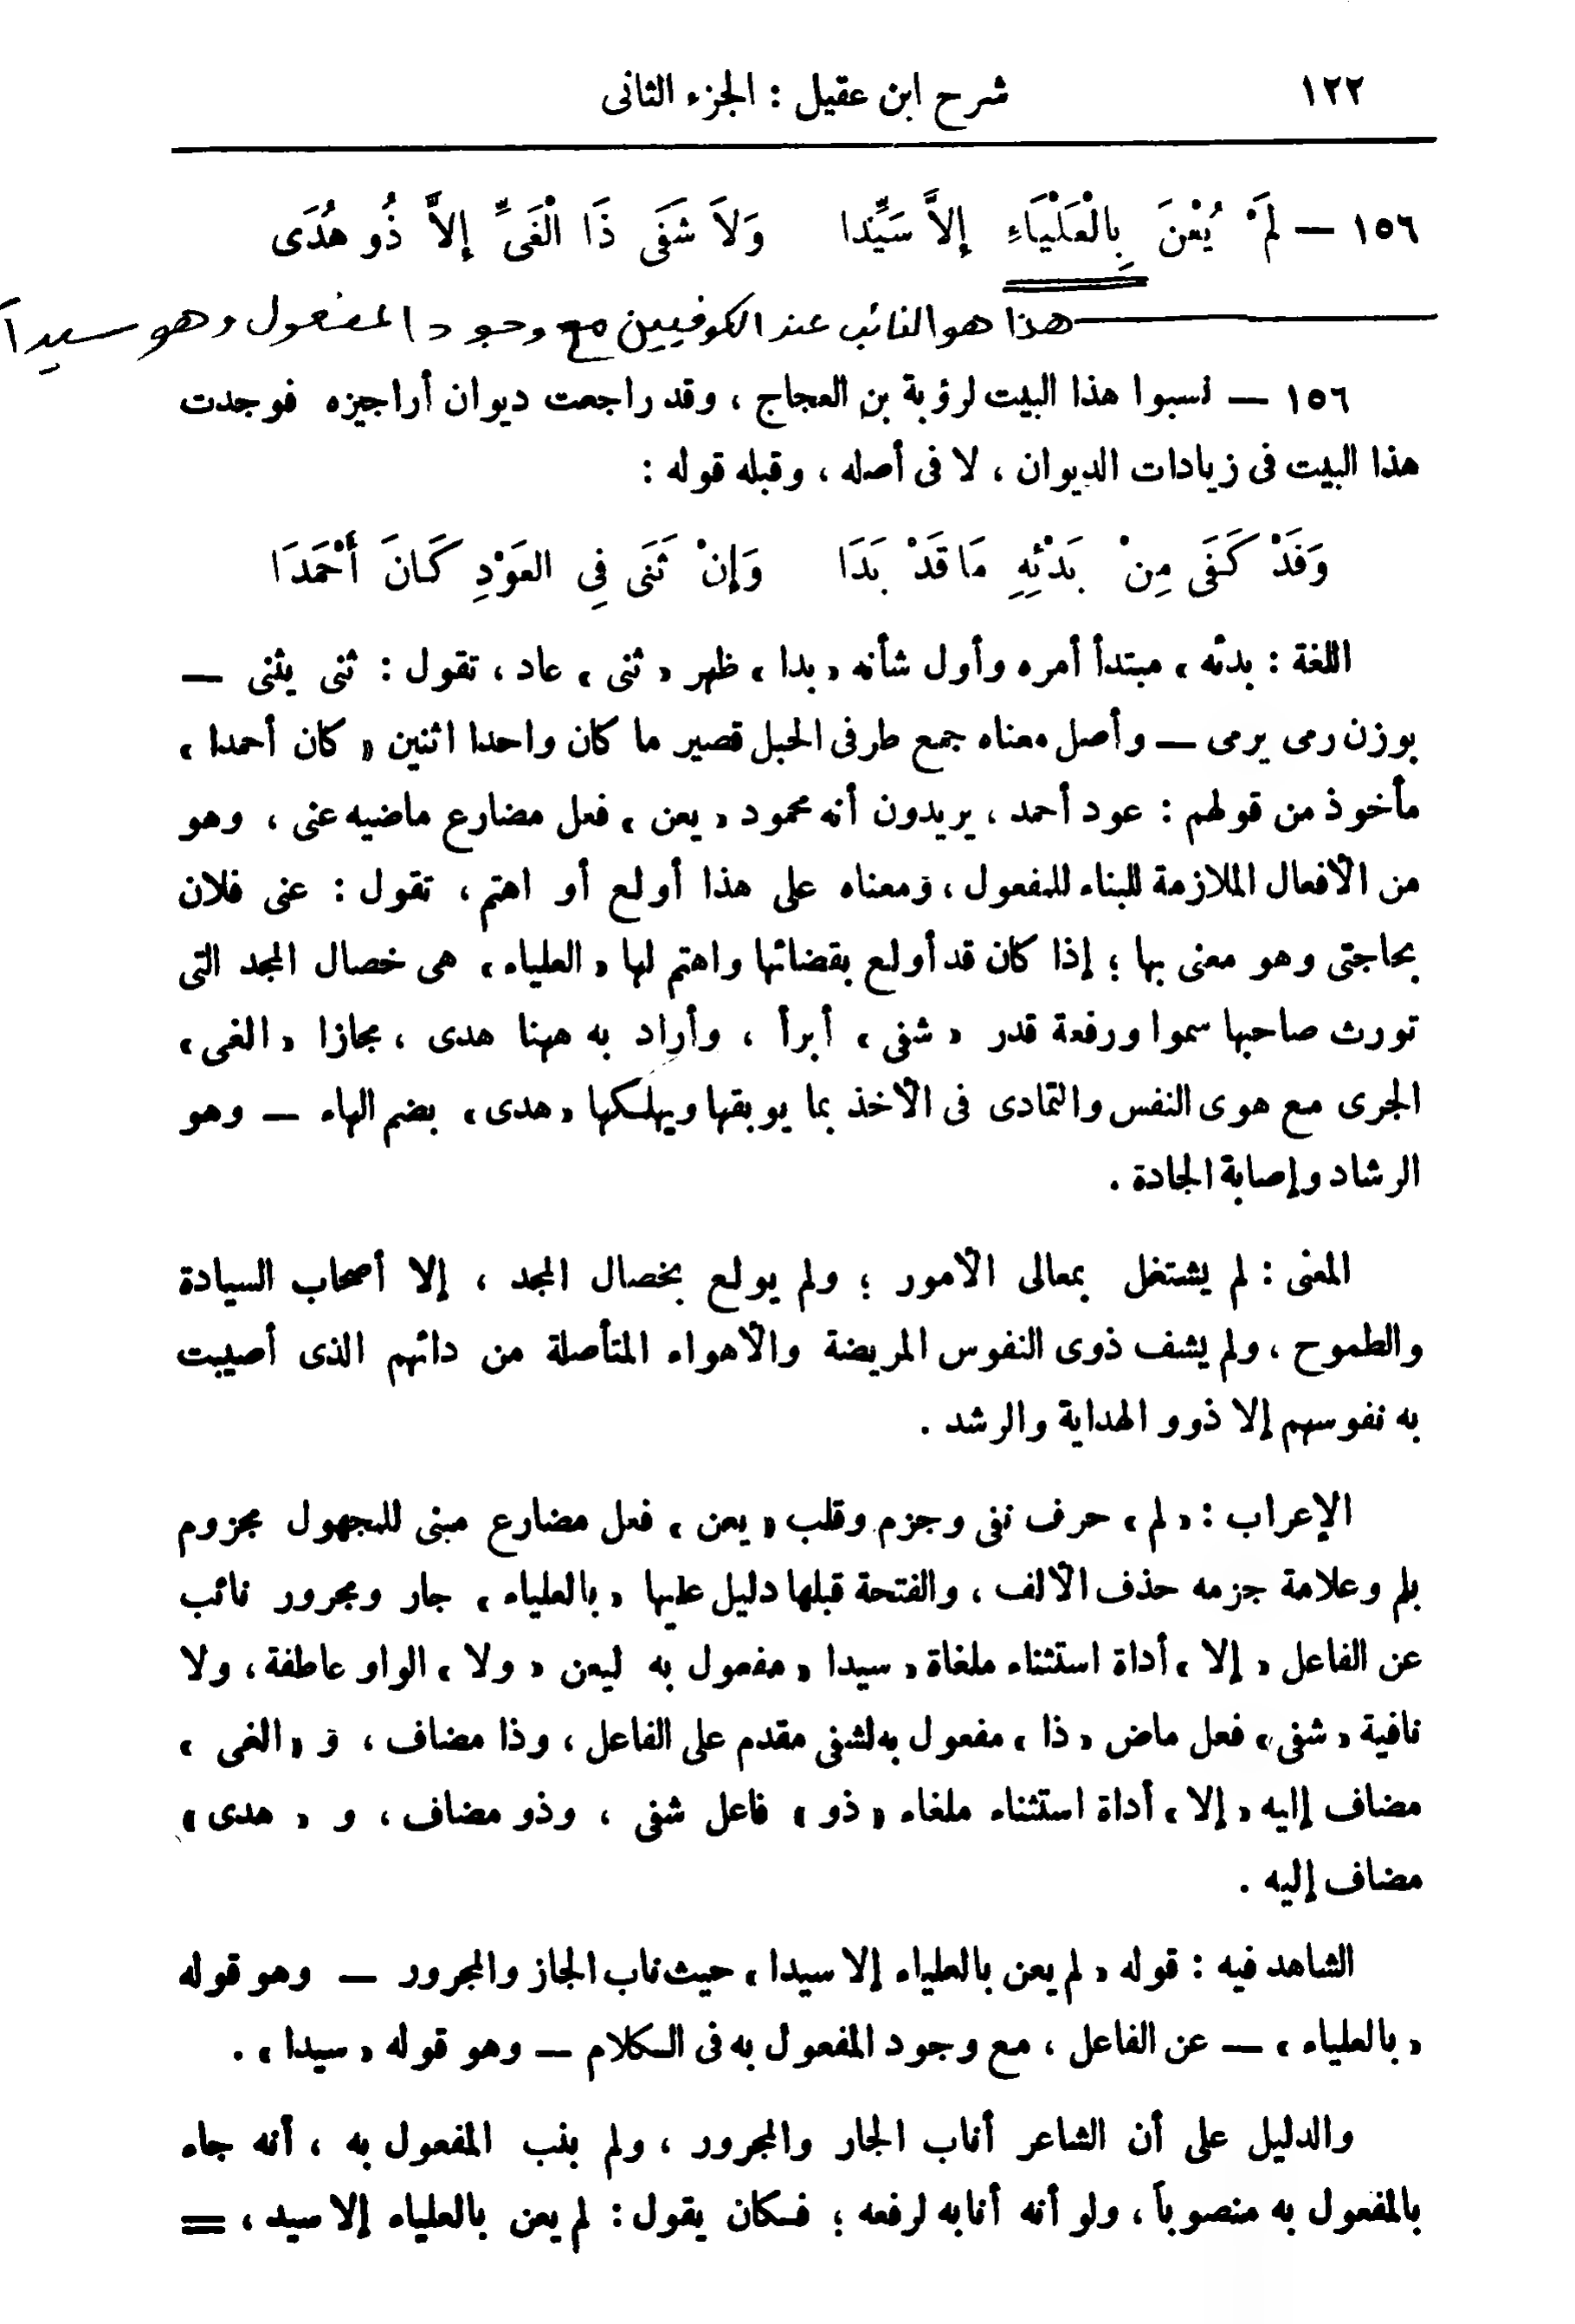 ١٢٢ شرح ابن عقيل : الجزء الثانى
١٥٦ — لَمْ يُعْنَ بِالْعَلْيَاءِ إلاَّ سَيِّدا وَلاَ شَفَى ذَا الْغَىِّ إلاَّ ذُو هُدَى
هذا هو النائب عند الكوفيين مع وجود المفعول وهو سيداً
١٥٦ — نسبوا هذا البيت لرؤبة بن العجاج ، وقد راجعت ديوان أراجيزه فوجدت
هذا البيت فى زيادات الديوان ، لا فى أصله ، وقبله قوله :
وَقَدْ كَفَى مِنْ بَدْئِهِ مَا قَدْ بَدَا وَإِنْ ثَنَى فِى العَوْدِ كَانَ أَحْمَدَا
اللغة : بدئه » مبتدأ أمره وأول شأنه « بدا » ظهر « ثنى » عاد ، تقول : ثنى يثنى —
بوزن رمى يرمى — وأصل معناه جمع طرفى الحبل قصير ما كان واحدا اثنين « كان أحمدا »
مأخوذ من قولهم : عود أحمد ، يريدون أنه محمود « يعن » فعل مضارع ماضيه عنى ، وهو
من الأفعال الملازمة للبناء للمفعول ، ومعناه على هذا أولع أو اهتم ، تقول : عنى فلان
بحاجتى وهو معنى بها ؛ إذا كان قد أولع بقضائها واهتم لها « العلياء » هى خصال المجد التى
تورث صاحبها سموا ورفعة قدر « شفى » أبرأ ، وأراد به ههنا هدى ، مجازا « الغى »
الجرى مع هوى النفس والتمادى فى الأخذ بما يوبقها ويهلكها « هدى » بضم الهاء — وهو
الرشاد وإصابة الجادة .
المعنى : لم يشتغل بمعالى الأمور ؛ ولم يولع بخصال المجد ، إلا أصحاب السيادة
والطموح ، ولم يشف ذوى النفوس المريضة والأهواء المتأصلة من دائهم الذى أصيبت
به نفوسهم إلا ذوو الهداية والرشد .
الإعراب : « لم » حرف نفى وجزم وقلب « يعن » فعل مضارع مبنى للمجهول مجزوم
بلم وعلامة جزمه حذف الألف ، والفتحة قبلها دليل عليها « بالعلياء » جار ومجرور نائب
عن الفاعل « إلا » أداة استثناء ملغاة « سيدا » مفعول به ليعن « ولا » الواو عاطفة ، ولا
نافية « شفى » فعل ماض « ذا » مفعول به لشفى مقدم على الفاعل ، وذا مضاف ، و « الغى »
مضاف إليه « إلا » أداة استثناء ملغاء « ذو » فاعل شفى ، وذو مضاف ، و « هدى »
مضاف إليه .
الشاهد فيه : قوله « لم يعن بالعلياء إلا سيدا » حيث ناب الجار والمجرور — وهو قوله
« بالعلياء » — عن الفاعل ، مع وجود المفعول به فى الكلام — وهو قوله « سيدا » .
والدليل على أن الشاعر أناب الجار والمجرور ، ولم ينب المفعول به ، أنه جاء
بالمفعول به منصوباً ، ولو أنه أنابه لرفعه ؛ فكان يقول : لم يعن بالعلياء إلا سيد ، =